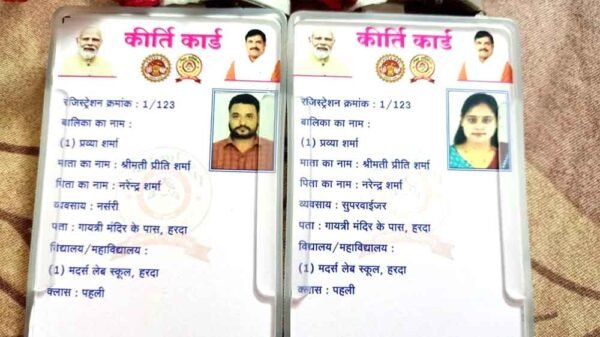 कीर्ति कार्ड
रजिस्ट्रेशन क्रमांक : 1/123
बालिका का नाम :
(1) प्रव्या शर्मा
माता का नाम : श्रीमती प्रीति शर्मा
पिता का नाम : नरेन्द्र शर्मा
व्यवसाय : नर्सरी
पता : गायत्री मंदिर के पास, हरदा
विद्यालय/महाविद्यालय :
(1) मदर्स लेब स्कूल, हरदा
क्लास : पहली
कीर्ति कार्ड
रजिस्ट्रेशन क्रमांक : 1/123
बालिका का नाम :
(1) प्रव्या शर्मा
माता का नाम : श्रीमती प्रीति शर्मा
पिता का नाम : नरेन्द्र शर्मा
व्यवसाय : सुपरवाईजर
पता : गायत्री मंदिर के पास, हरदा
विद्यालय/महाविद्यालय :
(1) मदर्स लेब स्कूल, हरदा
क्लास : पहली